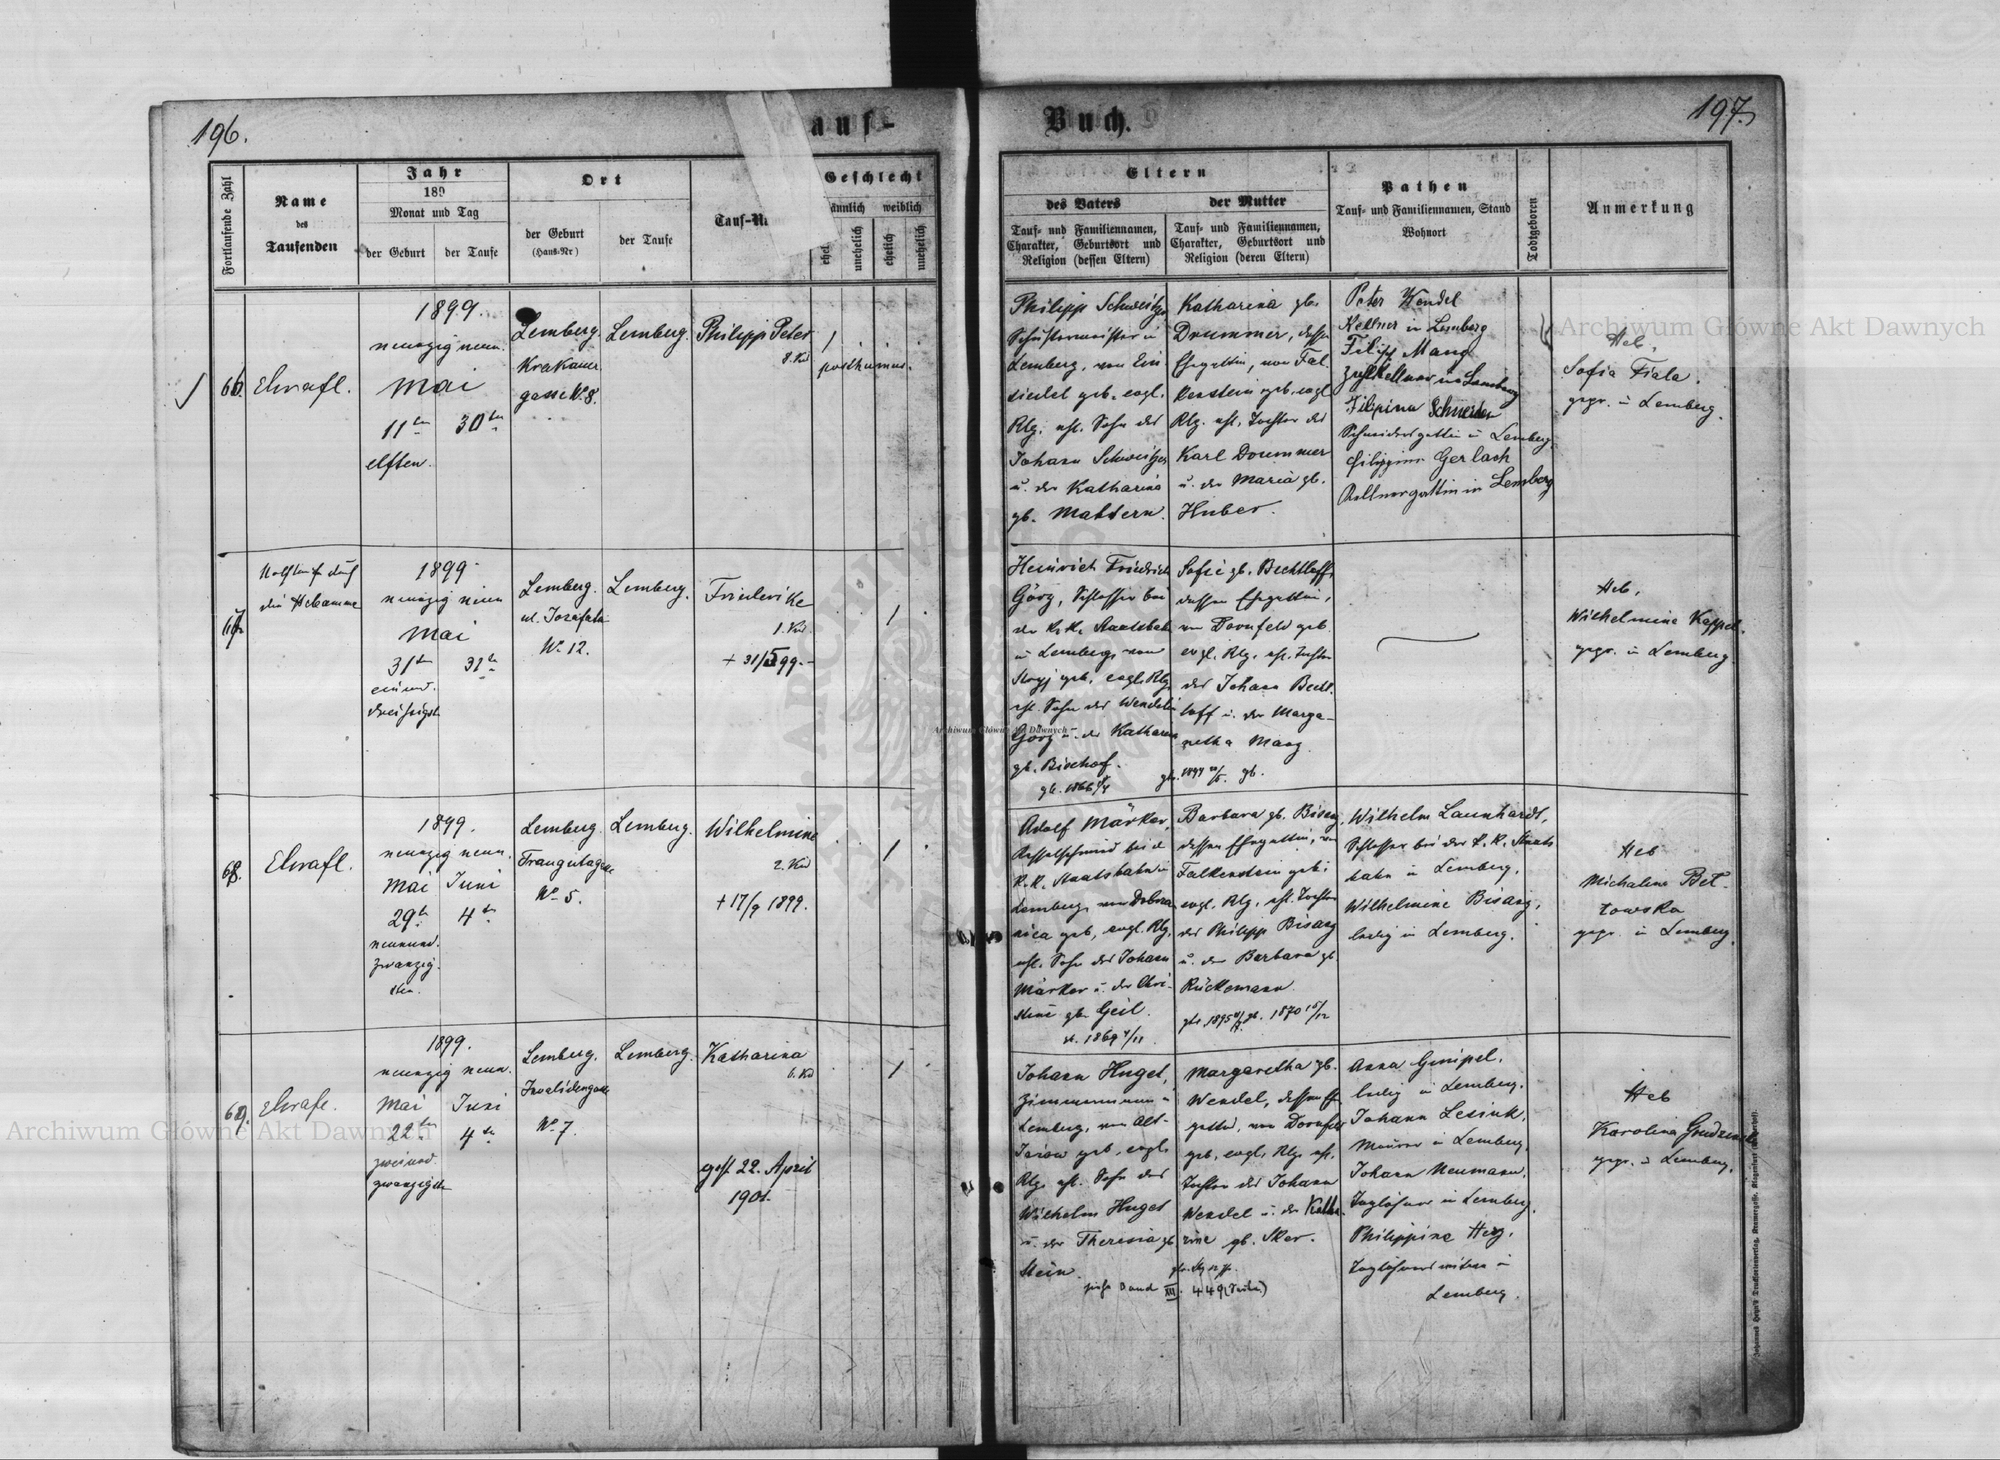 196.
Tauf-
Buch.
197.
Fortlaufende Zahl
Name
des
Taufenden
Jahr
189
Monat und Tag
der Geburt
der Taufe
Ort
der Geburt
(Haus-Nr)
der Taufe
Geschlecht
weiblich
unehelich
ehelich
unehelich
Eltern
des Vaters
Tauf- und Familiennamen,
Charakter, Geburtsort und
Religion (dessen Eltern)
der Mutter
Tauf- und Familiennamen,
Charakter, Geburtsort und
Religion (deren Eltern)
Pathen
Tauf- und Familiennamen, Stand
Wohnort
Todtgeboren
Anmerkung
66.
1899.
neunzig neun.
Mai
11ten 30ten
elften.
Lemberg.
Krakauer
gasse No 8.
Lemberg.
Philipp Peter
8. Kind
posthumus.
Philipp Schweitzer
Schustermeister in
Lemberg, von Ein
siedel geb. evgl.
Rlg. ehl. Sohn des
Johann Schweitzer
u. der Katharina
gb. Mattern.
Katharina gb.
Drummer, dessen
Ehegattin, von Fal
kenstein geb. evgl
Rlg. ehl. Tochter des
Karl Drummer
u. der Maria gb.
Huber.
Peter Wendel
Kellner in Lemberg
Filipp Mang
Zahlkellner in Lemberg
Filipina Schneider
Schneidersgattin in Lemberg
Filippine Gerlach
Kellnergattin in Lemberg
Heb.
Sofia Fiala.
gepr. in Lemberg.
67.
Nothtaufe durch
die Hebamme
1899
neunzig neun
Mai
31ten 31te
einund.
dreissigst
Lemberg.
ul. Jozafata
No 12.
Lemberg.
Friederike
1. Kind.
+ 31/5 99.-
Heinrich Friedrich
Görz, Schlosser bei
der k. k. Staatsbahn
in Lemberg, von
Stryj geb, evgl. Rlg.
ehl. Sohn des Wendelin
Görz u. der Katharina
gb. Bischof.
Sofie gb. Bechtloff
dessen Ehegattin,
von Dornfeld geb.
evgl. Rlg. ehl. Tochter
des Johann Becht.
loff u. der Marga-
retha Mang.
Heb.
Wilhelmine Kappel.
gepr. in Lemberg
68.
1899.
neunzig neun.
Mai Juni
29te 4te
neunund.
zwanzig.
sten.
Lemberg.
Traugutagasse
No 5.
Lemberg.
Wilhelmine
2. Kind
+ 17/9 1899.
Adolf Märker,
Kesselschmid bei d
k. k. Staatsbahn in
Lemberg, von Dobrza
nica geb, evgl. Rlg.
ehl. Sohn des Johann
Märker u. der Chri-
stine gb. Geil.
Barbara gb. Bisanz,
dessen Ehegattin, von
Falkenstein geb.
evgl. Rlg. ehl. Tochter
des Philipp Bisanz
u. der Barbara gb.
Rückemann.
Wilhelm Launhardt,
Schlosser bei der k. k. Staats
bahn in Lemberg.
Wilhelmine Bisanz,
ledig in Lemberg.
Heb
Michalina Bet-
towska
gepr. in Lemberg.
69.
1899.
neunzig neun.
Mai Juni
22ten 4te
zweiund.
zwanzigsten
Lemberg.
Invalidengasse
No 7.
Lemberg.
Katharina
6. Kind
gest. 22. April
1901.
Johann Huget,
Zimmermann in
Lemberg, von Alt-
Jarow geb, evgl.
Rlg. ehl. Sohn des
Wilhelm Huget
u. der Theresia gb
Stein.
Margaretha gb.
Wendel, dessen Ehe
gattin, von Dornfeld
geb, evgl. Rlg. ehl.
Tochter des Johann
Wendel u. der Katha
rine gb. Sker.
siehe Band XII. 449
Anna Gmipel,
ledig in Lemberg.
Johann Lesiuk,
Maurer in Lemberg.
Johann Neumann,
Taglöhner in Lemberg.
Philippine Herz,
Taglöhnerswitwe in
Lemberg.
Heb
Karolina
gepr. in Lemberg.
Archiwum Główne Akt Dawnych
Archiwum Główne Akt Dawnych
Archiwum Główne Akt Dawnych